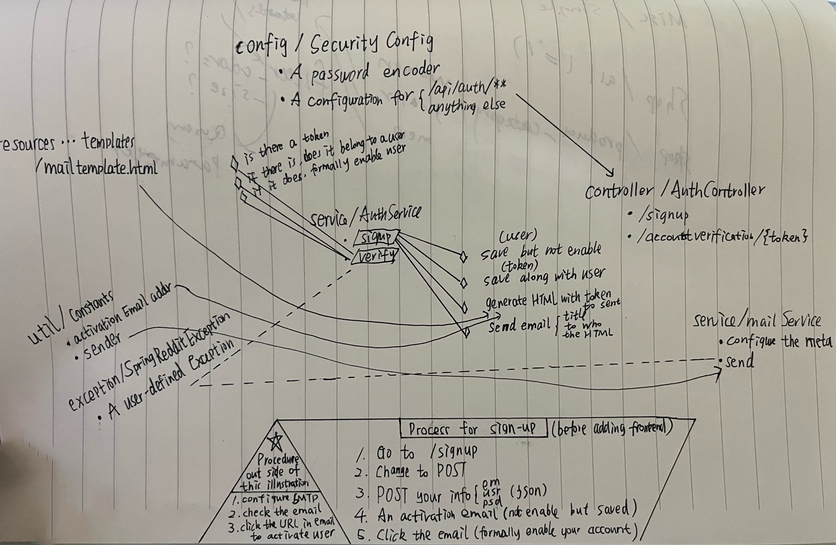 config / Security Config
• A password encoder
• A configuration for { /api/auth/**
anything else
esources ··· templates
/mailtemplate.html
is there a token
if there is, does it belong to a user
if it does, formally enable user
controller / AuthController
• /signup
• /accountverification/{token}
service/AuthService
signup
verify
(user)
save but not enable
(token)
save along with user
generate HTML with token
to sent
send email { title
to who
the HTML
util/Constants
• activation Email addr
• sender
exception/SpringRedditException
• A user-defined Exception
service/mail Service
• configue the meta
• send
Procedure
out side of
this illustration
1. configure SMTP
2. check the email
3. click the URL in email
to activate user
Process for sign-up (before adding frontend)
1. Go to /signup
2. Change to POST
3. POST your info { em
usr
psd (json)
4. An activation email (not enable but saved)
5. Click the email (formally enable your account)